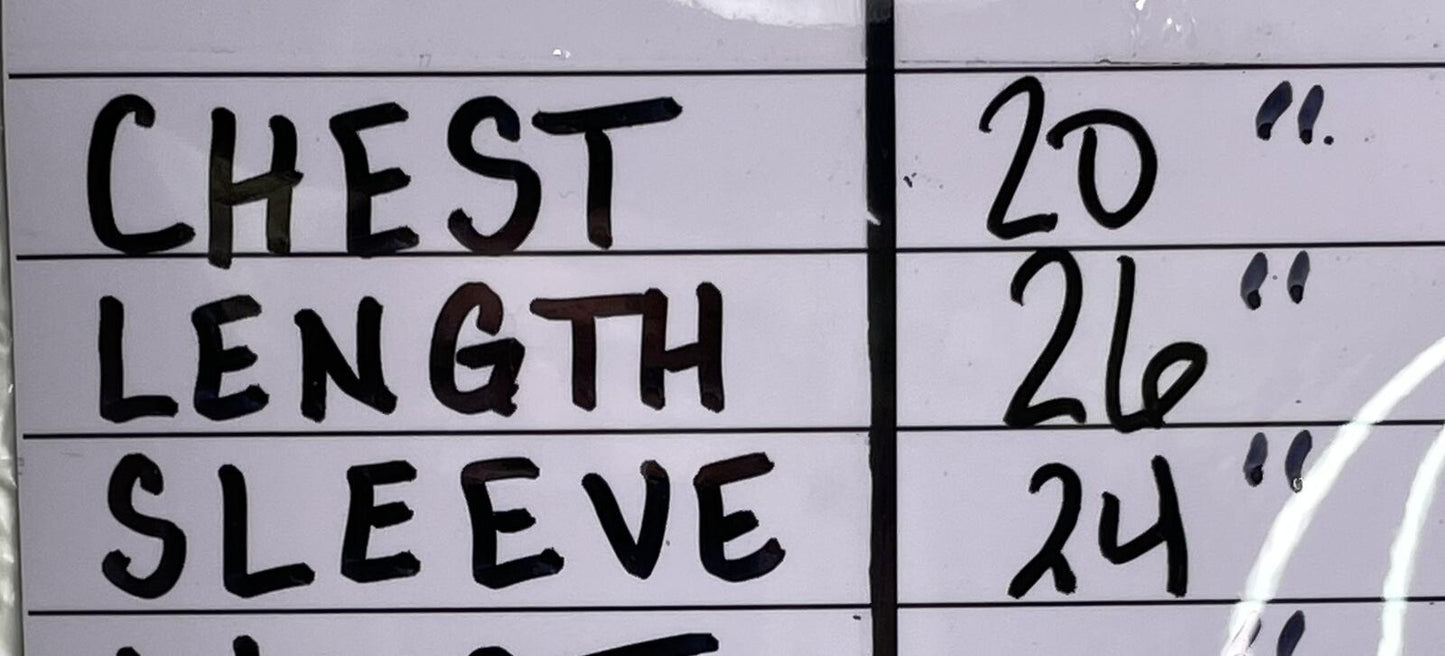 CHEST 20 ".
LENGTH 26 "
SLEEVE 24 "